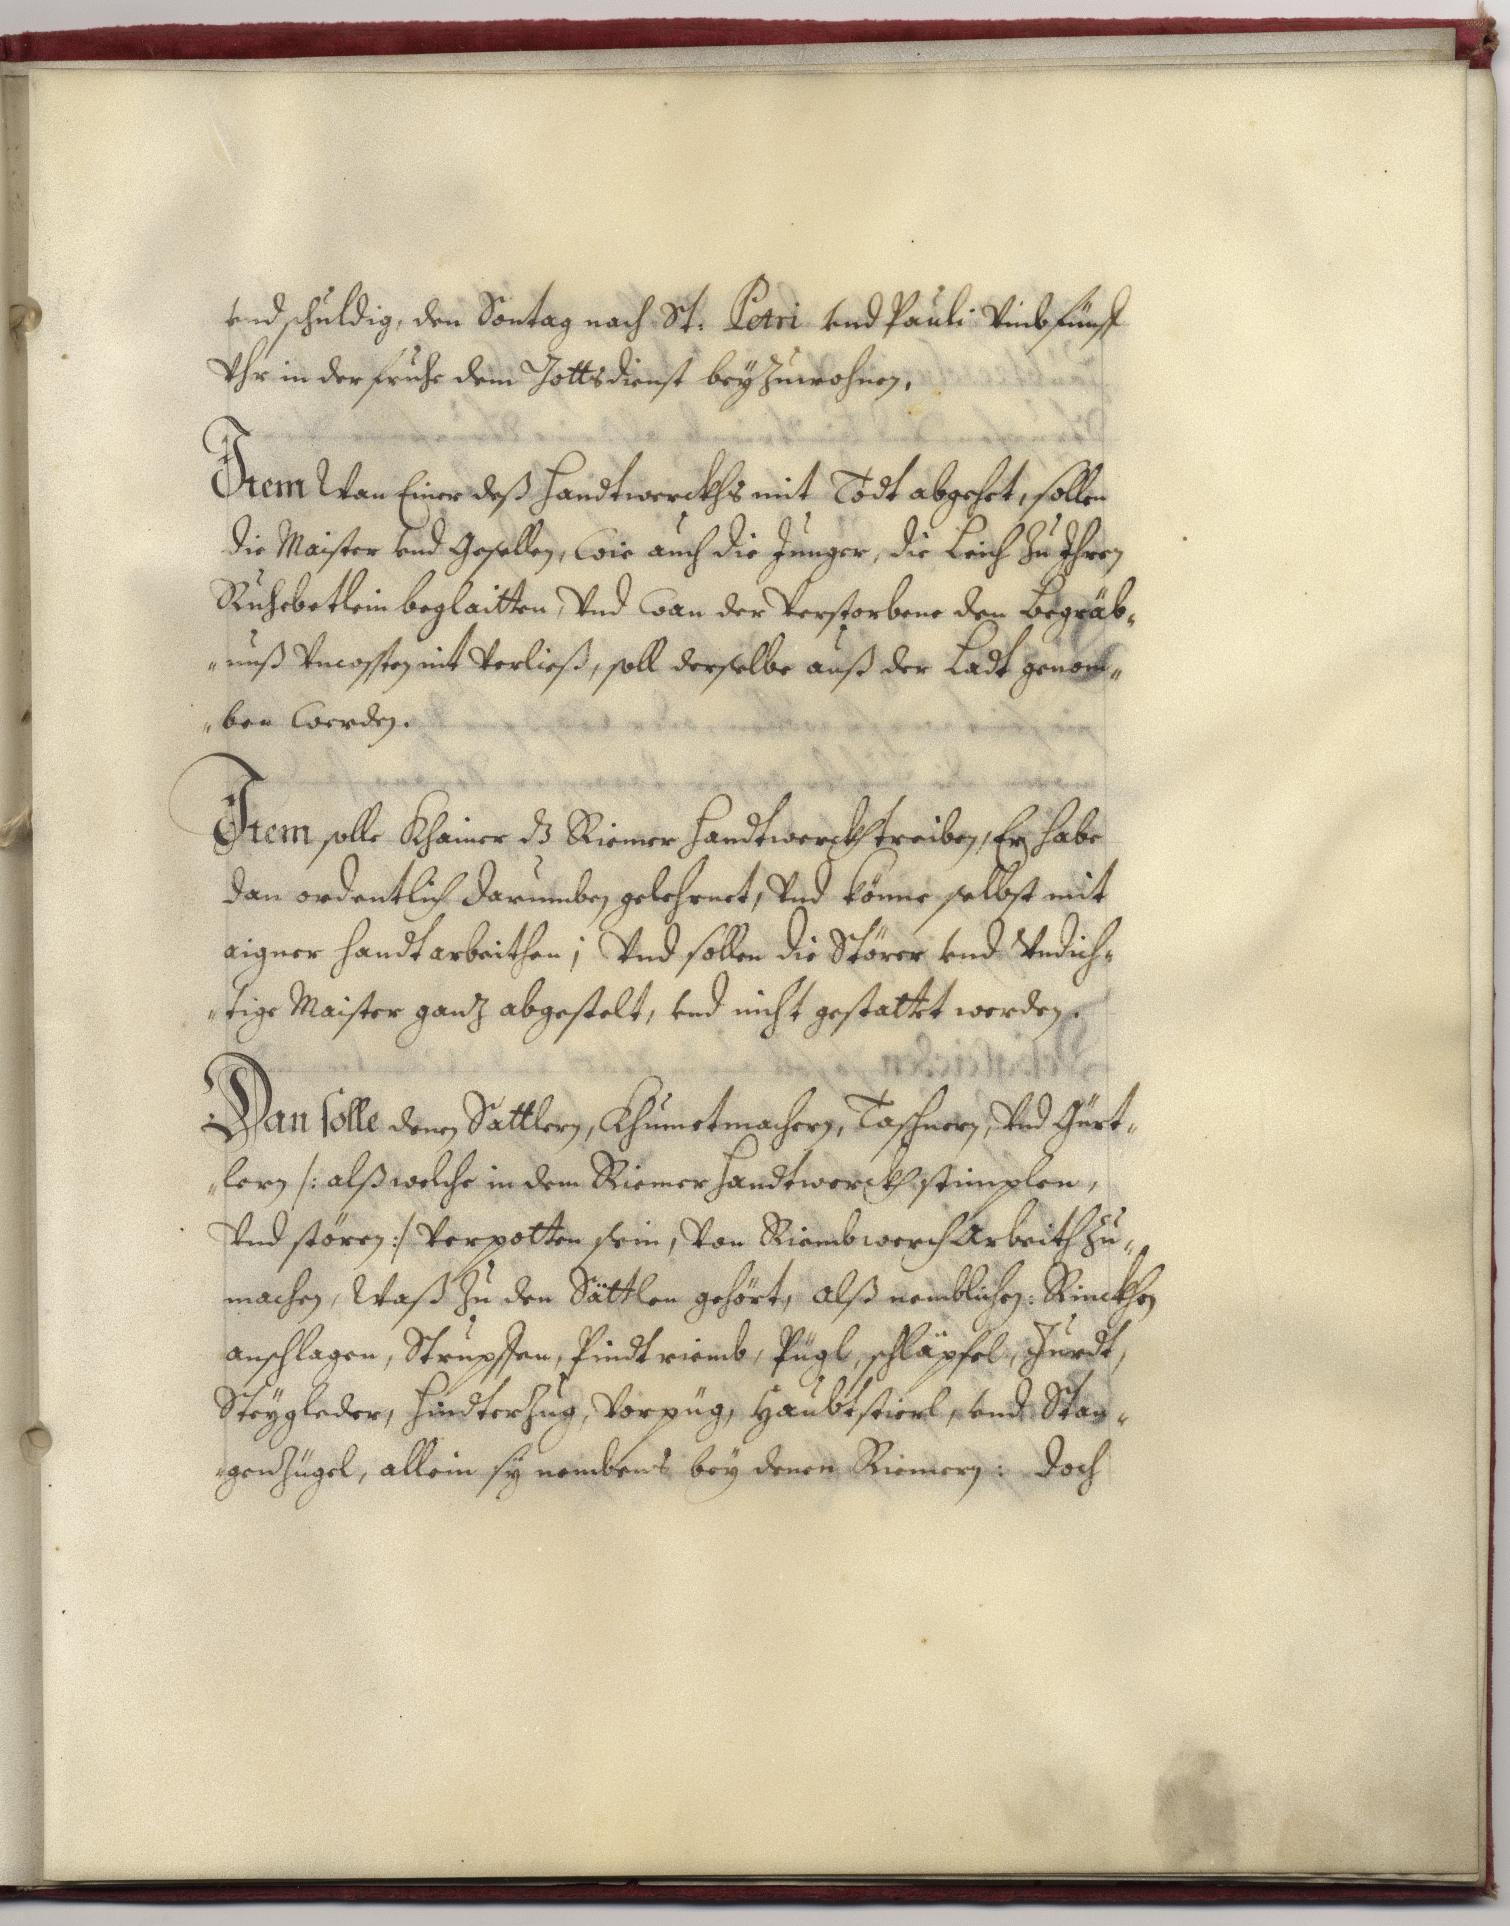 vnd schuldig, den Sontag nach St. Petri vnd Pauli Vmb fünff
Vhr in der fruhe dem Gottsdienst beyzuwohnen.
Item Wan Einer deß Handtwerckhs mit Todt abgehet, sollen
die Maister vnd Gesellen, wie auch die Junger, die Leich zu Ihren
Ruhebetlein beglaitten, Vnd wan der Verstorbene den Begräb-
"nuß Vncossten nit Verließ, soll derselbe auß der Ladt genom-
"ben werden.
Item solle Khainer dz Riemer Handtwerckh treiben, Er habe
dan ordentlich darumben gelehrnet, Vnd könne selbst mit
aigner Handt arbeithen; Vnd sollen die Störer vnd Vndich-
"tige Maister ganz abgestelt, vnd nicht gestattet werden.
Dan solle denen Sattlern, Khumetmachern, Taschnern, Vnd Gürt-
"lern /: alß welche in dem Riemer Handtwerckh stimplen,
Vnd stören :/ Verpotten sein, Von Riembwerch Arbeith zu-
machen, Waß zu den Sättlen gehört, alß nemblichen: Rinckhen
anschlagen, Strupffen, Pindtriemb, Pügl, schläpfel, Gurdt,
Steygleder, Hindterzug, Vorpüg, Haubtstierl, vnd Stan-
"genzügel, allein sy nembens bey denen Riemern: doch